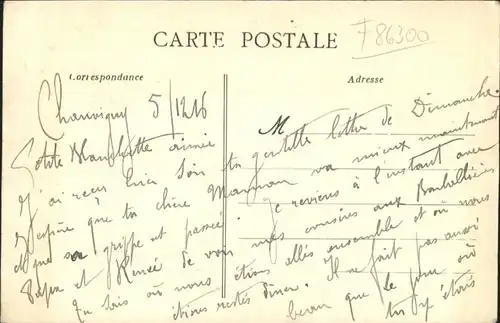 F 86300
CARTE POSTALE
Correspondance
Adresse
Chauvigny 5/12 16
M
Petite Manchette aimée
J'ai reçu hier soir ta gentille lettre de Dimanche.
J'espère que ta chère Maman va mieux maintenant
et que sa grippe est passée. Je reviens à l'instant avec
Papa et Renée de voir mes cousines aux Barballières
Tu sais où nous étions allés ensemble et où nous
étions restés dîner. Il ne fait pas aussi
beau que le jour où
tu y étais